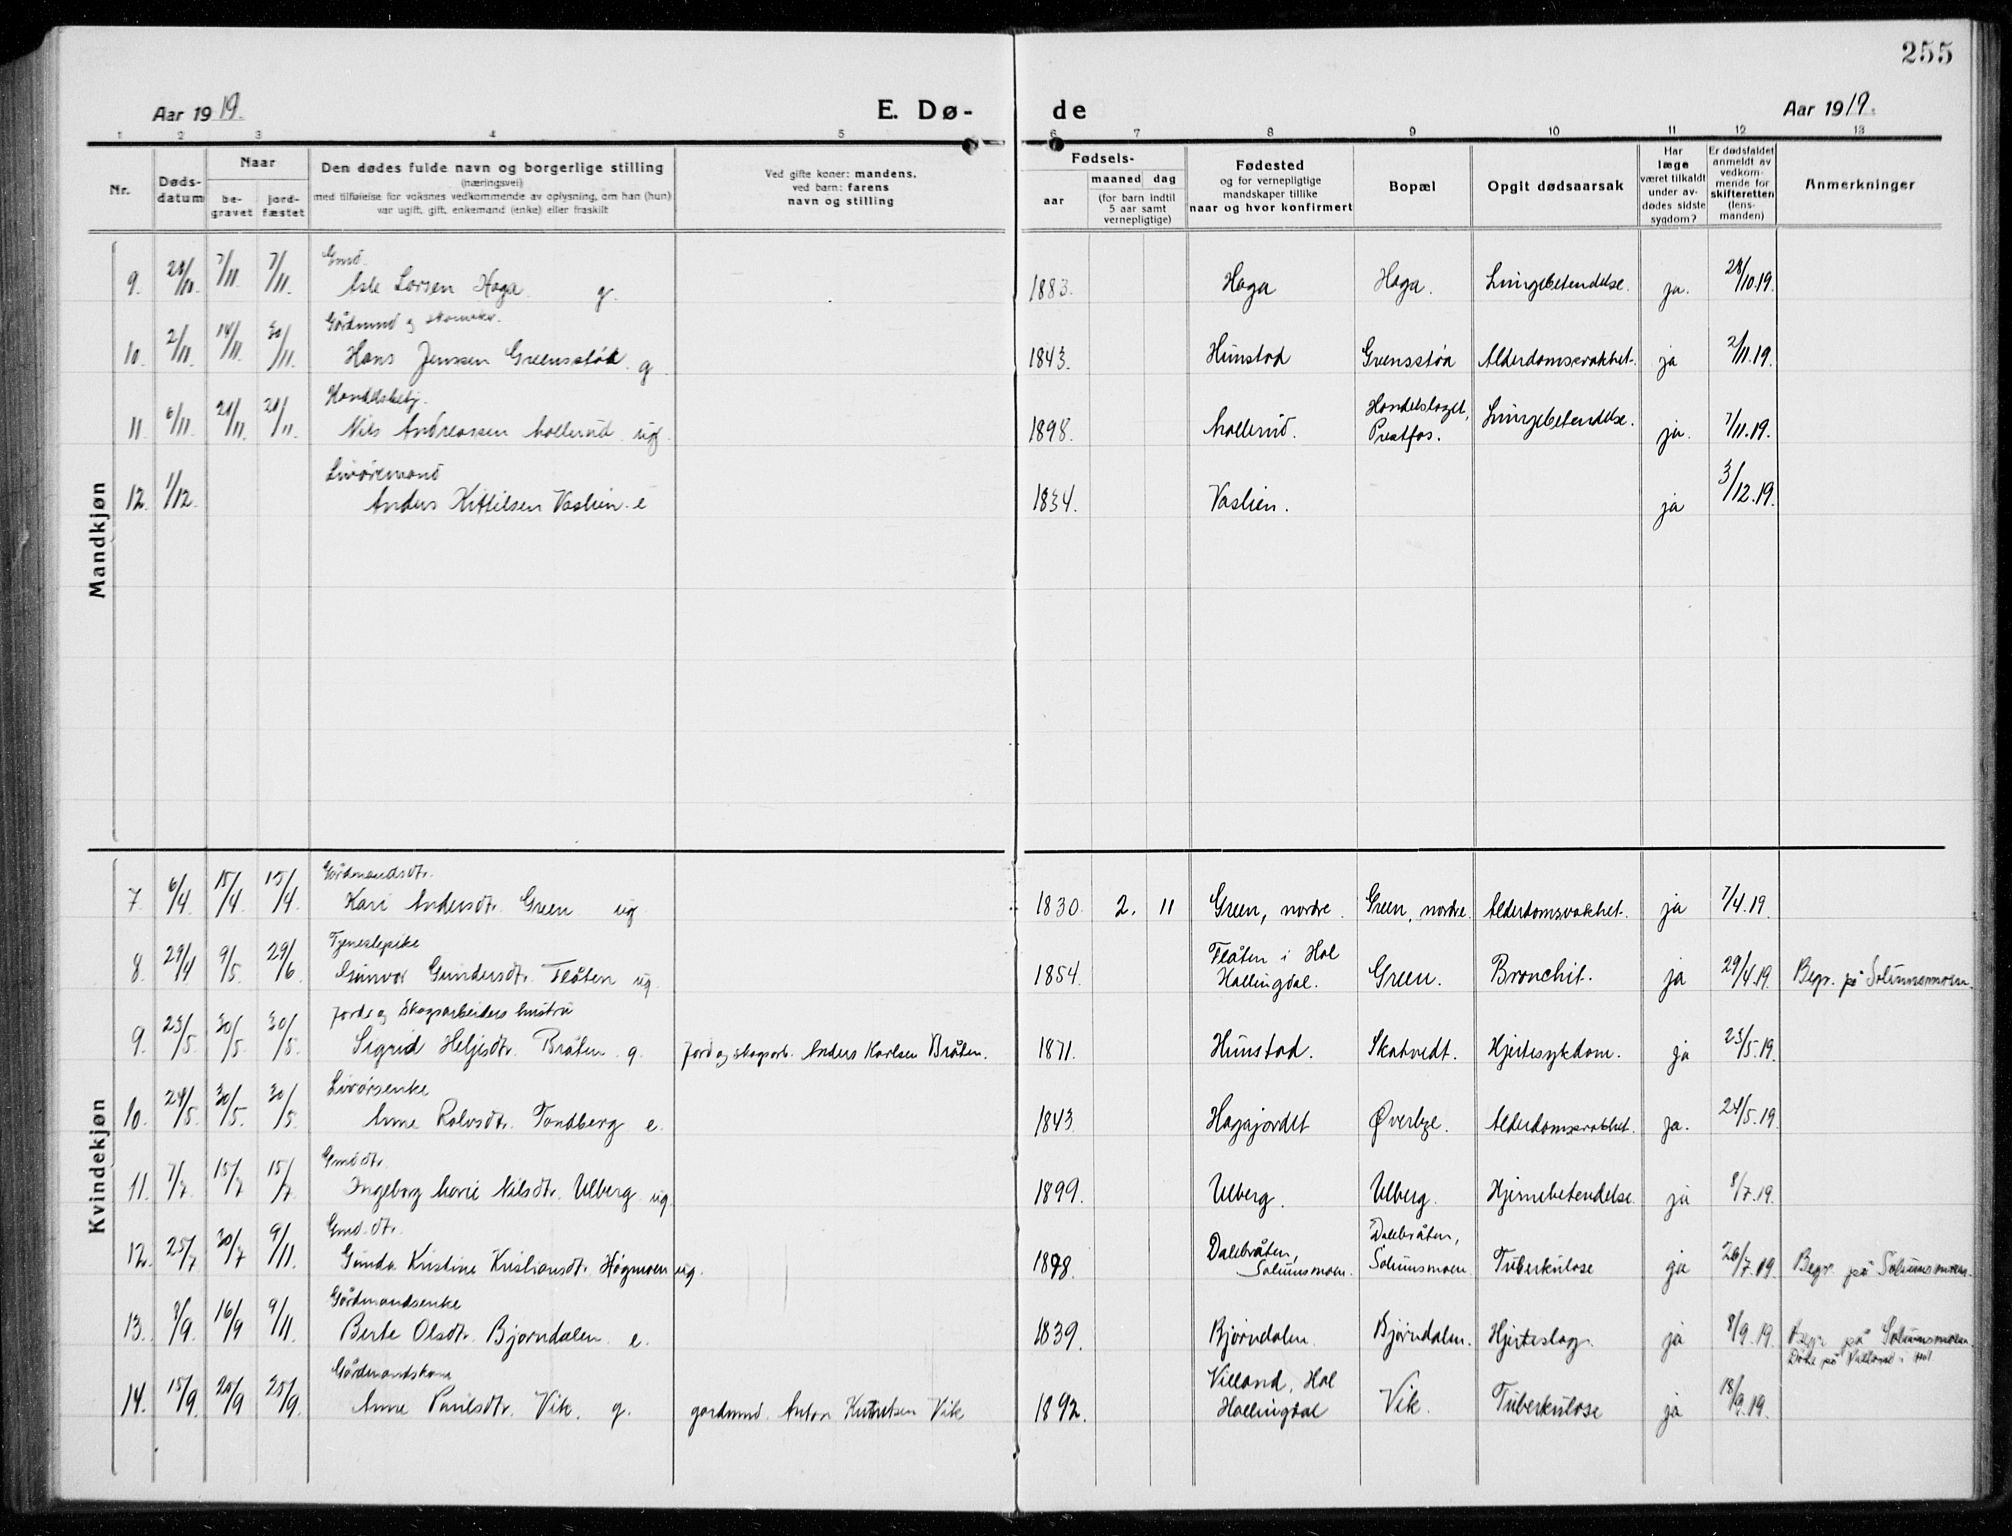 255
Aar 1919.
E. Dø-
de
Aar 1919.
1 2 3 4 5 6 7 8 9 10 11 12 13
Nr.
Døds-
datum
Naar
be-
gravet
jord-
fæstet
Den dødes fulde navn og borgerlige stilling
(næringsvei)
med tilføielse for voksnes vedkommende av oplysning, om han (hun)
var ugift, gift, enkemand (enke) eller fraskilt
Ved gifte koner: mandens,
ved barn: farens
navn og stilling
Fødsels-
aar
maaned dag
(for barn indtil
5 aar samt
vernepligtige)
Fødested
og for vernepligtige
mandskaper tillike
naar og hvor konfirmert
Bopæl
Opgit dødsaarsak
Har
læge
været tilkaldt
under av-
dødes sidste
sygdom?
Er dødsfaldet
anmeldt av
vedkom-
mende for
skifteretten
(lens-
manden)
Anmerkninger
Mandkjøn
Gmd.
9. 28/10. 7/11. 7/11. Asle Larsen Haga. g. 1883. Haga Haga. Lungebetendelse. ja. 28/10.19.
Gårdmand og skomaker.
10. 2/11. 14/11 30/11. Hans Jenssen Greensstøa. g 1843. Hunstad Greensstøa Alderdomssvakhet. ja 2/11.19.
Handelsbetj.
11. 6/11. 21/11. 21/11. Nils Andreassen Mollerud ug. 1898. Mollerud. Handelslaget,
Prestfos. Lungebetendelse. ja. 7/11.19.
Livøremand
12. 1/12. Anders Kittilsen Vaslien. e 1834. Vaslien. ja 3/12.19.
Kvindekjøn
Gårdmandsdt.
7. 6/4. 15/4. 15/4. Kari Andersdt. Green ug. 1830. 2. 11 Green, nordre. Green, nordre. Alderdomsvakhet. ja 7/4.19.
Tjenestepike
8. 29/4 9/5. 29/6 Gunvor Gundersdt. Flåten ug. 1854. Flåten i Hol
Hallingdal. Green. Bronchit. ja 29/4.19. Begr. på Solumsmoen.
Jord og Skogsarbeiders hustru
9. 23/5. 30/5. 30/5. Sigrid Heljesdt. Bråten. g. Jord og skogsarb. Anders Karlsen Bråten. 1871. Hunstad. Skatvedt. Hjertesykdom. ja 23/5.19.
Livørsenke
10. 24/5. 30/5. 30/5. Anne Rolvsdt. Tandberg e. 1843. Hagajordet Øverbye. Alderdomssvakhet. ja. 24/5.19.
Gmddt.
11. 7/7. 15/7 15/7. Ingeborg Marie Nilsdt. Ulberg ug. 1899. Ulberg. Ulberg. Hjernebetendelse. ja 8/7.19.
Gmd.dt.
12. 25/7 30/7 9/11. Gunda Kristine Kristiansdt. Høgmoen ug. 1898. Dalebråten,
Solumsmoen. Dalebråten,
Solumsmoen. Tuberkulose ja 26/7.19. Begr. på Solumsmoen.
Gårdmandsenke
13. 8/9. 16/9 9/11. Berte Olsdt. Bjørndalen. e. 1839. Bjørndalen. Bjørndalen. Hjerteslag. ja 8/9.19. Begr. på Solumsmoen
Døde på Villand i Hol
Gårdmandskone
14. 15/9. 25/9 25/9. Anne Paulsdt. Vik. g. gardmnd. Anton Knutsen Vik 1892. Villand, Hol
Hallingdal Vik. Tuberkulose ja 18/9.19.